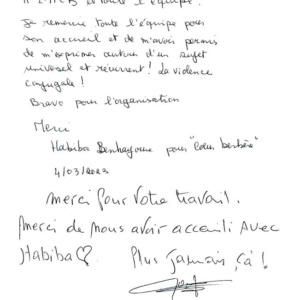 et toute l'équipe.
Je remercie toute l'équipe pour
son accueil et de m'avoir permis
de m'exprimer autour d'un sujet
universel et récurrent ! La violence
conjugale !
Bravo pour l'organisation
Merci
Habiba Benhayoune pour "Cœur berbère"
4/03/2023
Merci pour votre travail.
Merci de nous avoir acceuili avec
Habiba♡. Plus jamais ça !